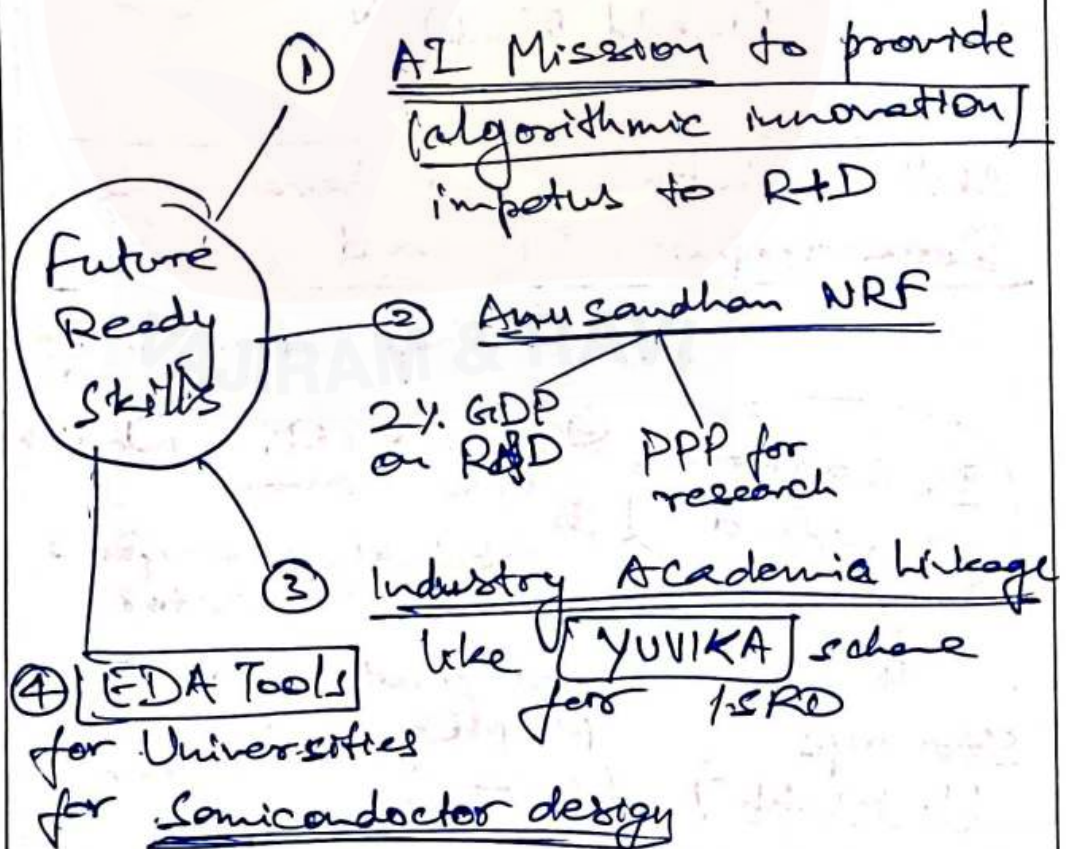 Future
Ready
Skills
① AI Mission to provide
(algorithmic innovation)
impetus to R+D
② Anusandhan NRF
2% GDP
on R&D
PPP for
research
③ Industry Academia Linkage
like YUVIKA scheme
for ISRO
④ EDA Tools
for Universities
for Semicondoctor design